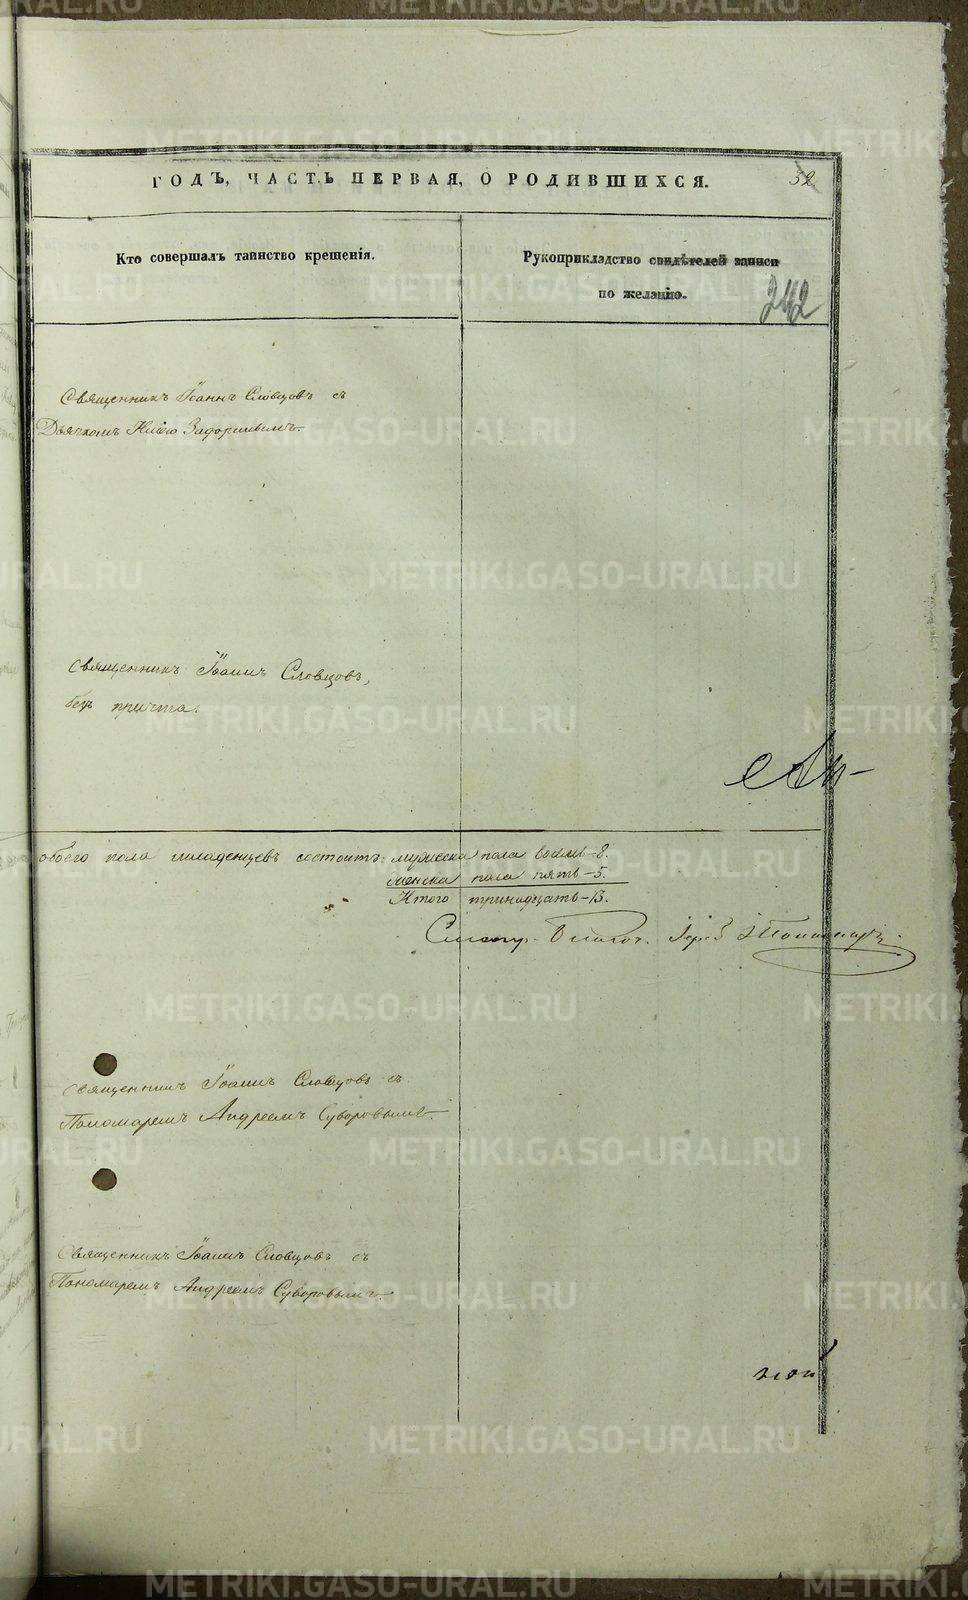 ГОДЪ, ЧАСТЬ ПЕРВАЯ, О РОДИВШИХСЯ.
52
Кто совершалъ таинство крещенія.
Рукоприкладство свидѣтелей записи
по желанію.
242
Священникъ Іоаннъ Словцовъ съ
Дьячкомъ
Священникъ Іоаннъ Словцовъ,
безъ причта.
обоего пола младенцевъ состоитъ: мужеска пола восмь - 8.
женска пола пять - 5.
Итого тринадцать - 13.
Священникъ Іоаннъ Словцовъ съ
Пономаремъ Андреемъ Суворовымъ.
Священникъ Іоаннъ Словцовъ съ
Пономаремъ Андреемъ Суворовымъ.
METRIKI.GASO-URAL.RU